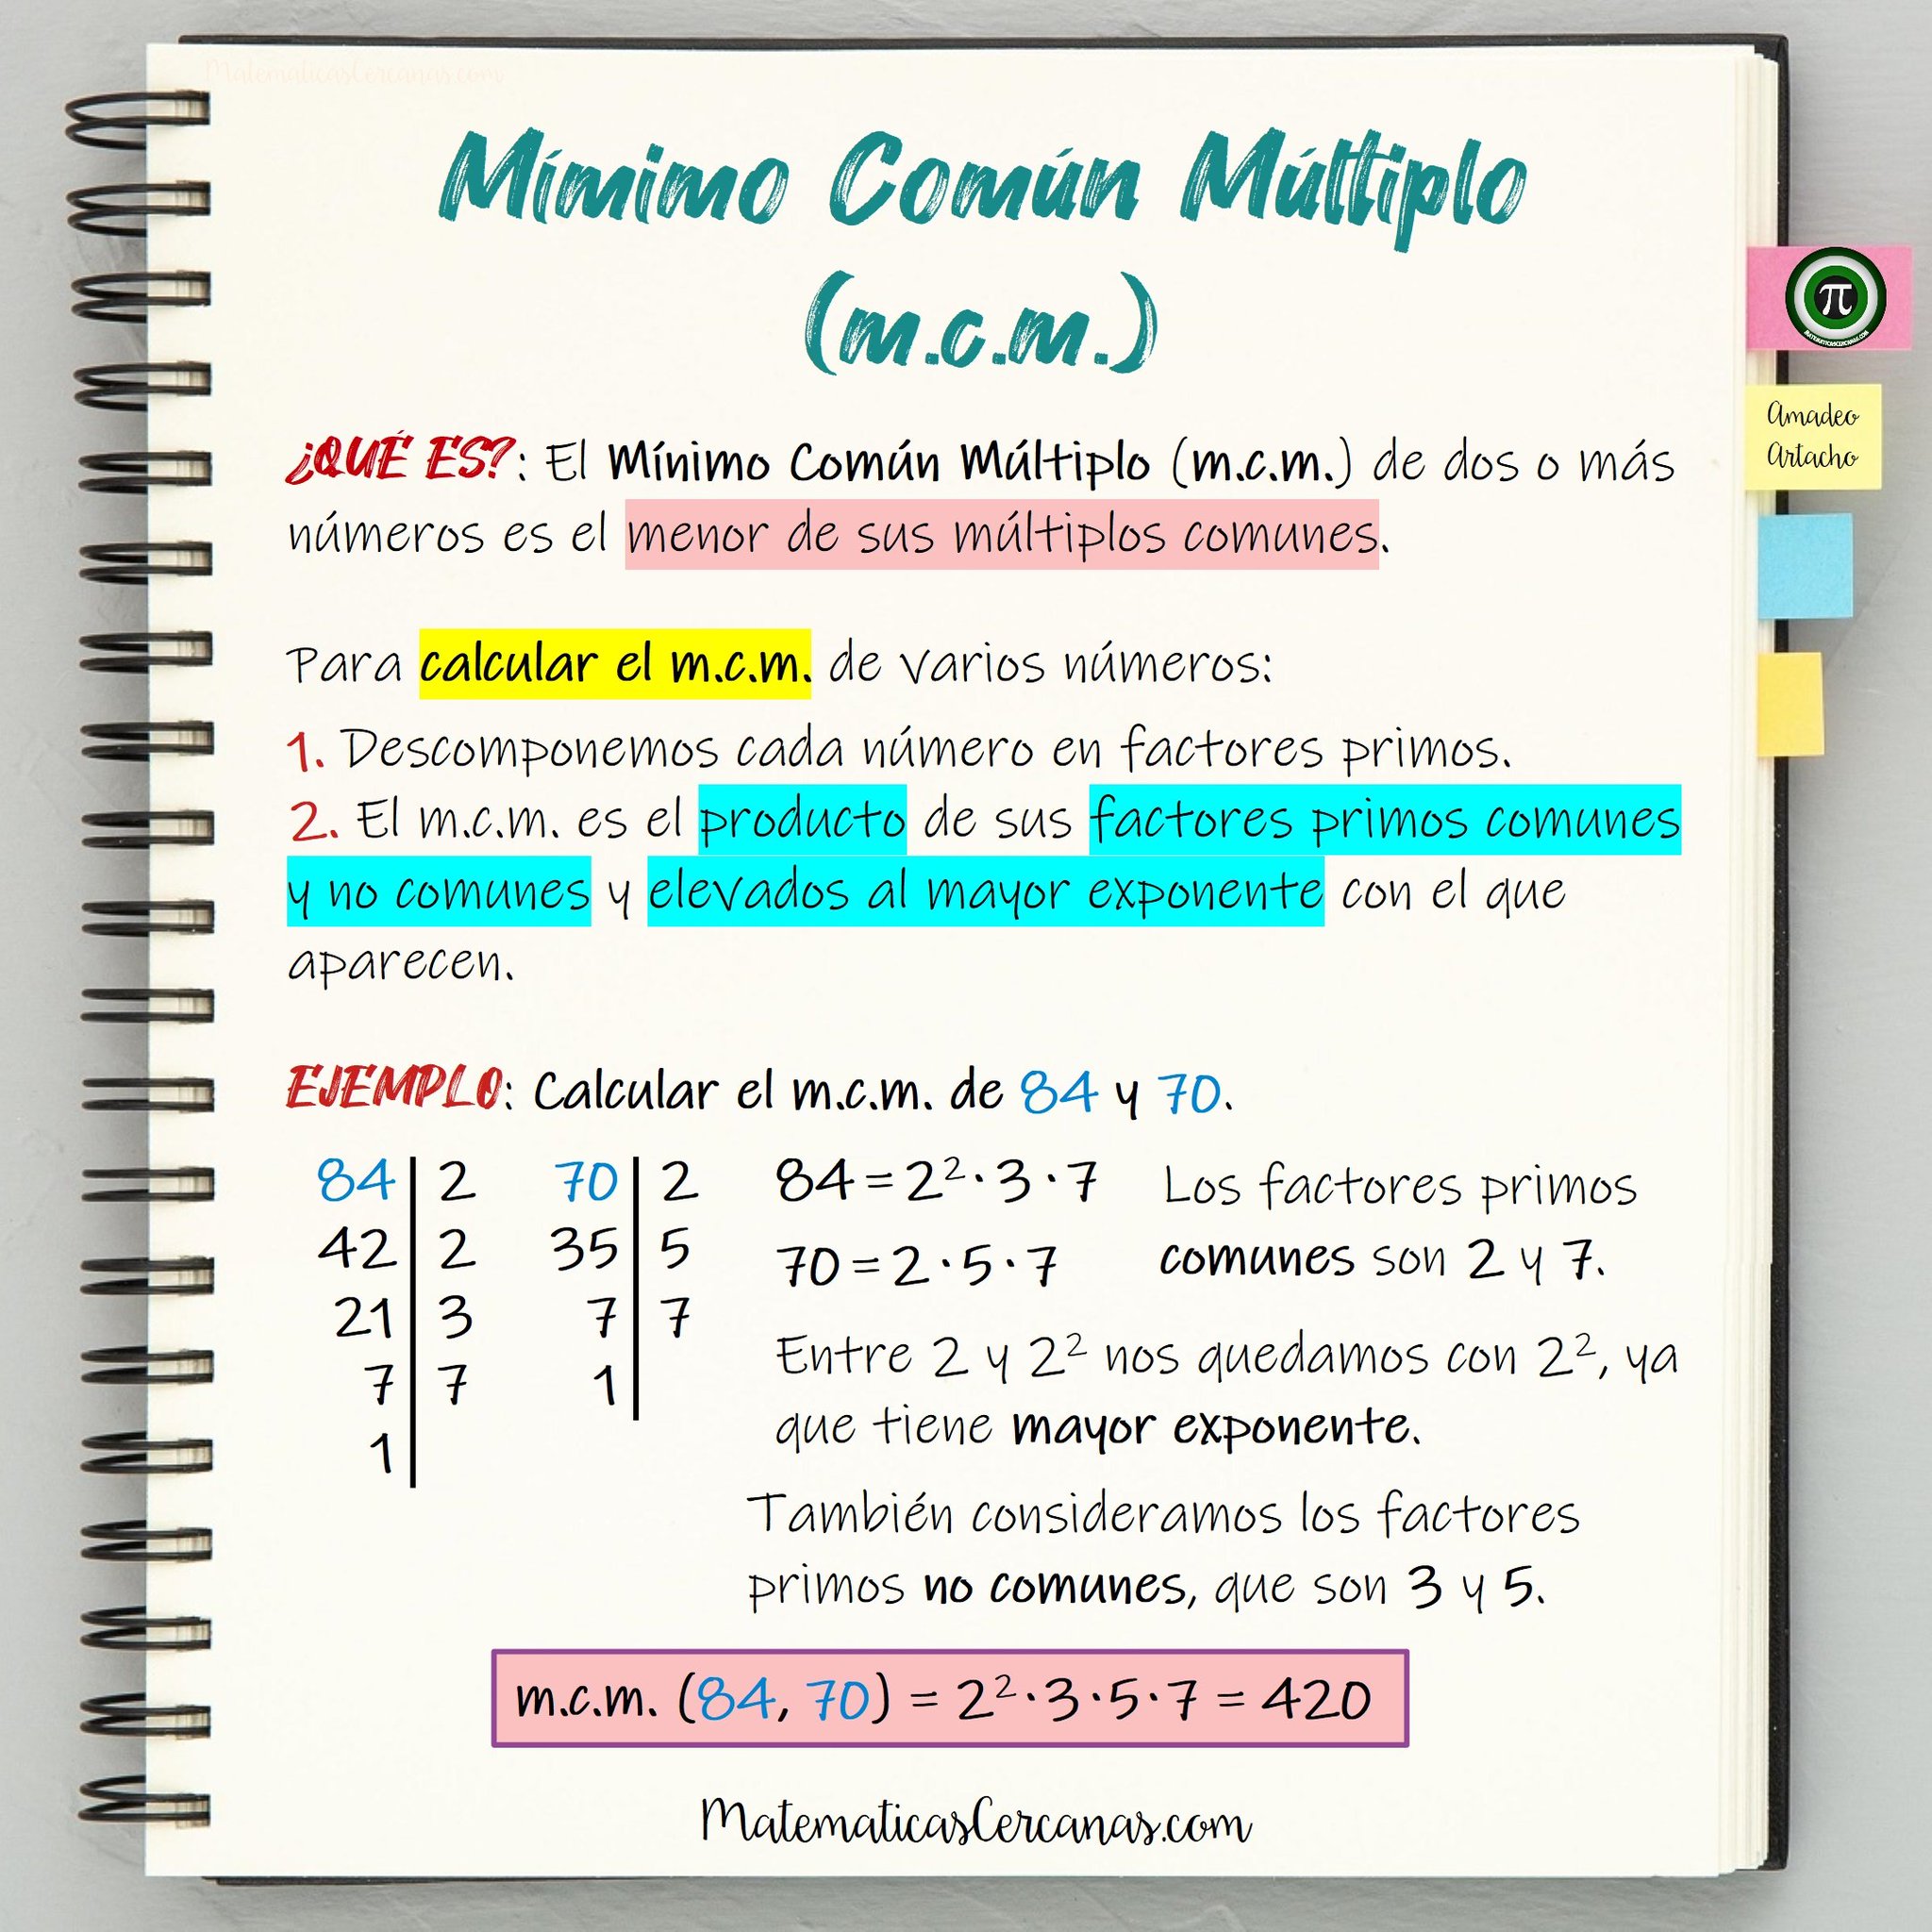 MatematicasCercanas.com
Mímimo Común Múltiplo
(m.c.m.)
π
MATEMATICASCERCANAS.COM
Amadeo
Artacho
¿QUÉ ES?: El Mínimo Común Múltiplo (m.c.m.) de dos o más
números es el menor de sus múltiplos comunes.
Para calcular el m.c.m. de varios números:
1. Descomponemos cada número en factores primos.
2. El m.c.m. es el producto de sus factores primos comunes
y no comunes y elevados al mayor exponente con el que
aparecen.
EJEMPLO: Calcular el m.c.m. de 84 y 70.
84 | 2
42 | 2
21 | 3
7 | 7
1 |
70 | 2
35 | 5
7 | 7
1 |
84 = 2²·3·7
70 = 2·5·7
Los factores primos
comunes son 2 y 7.
Entre 2 y 2² nos quedamos con 2², ya
que tiene mayor exponente.
También consideramos los factores
primos no comunes, que son 3 y 5.
m.c.m. (84, 70) = 2²·3·5·7 = 420
MatematicasCercanas.com